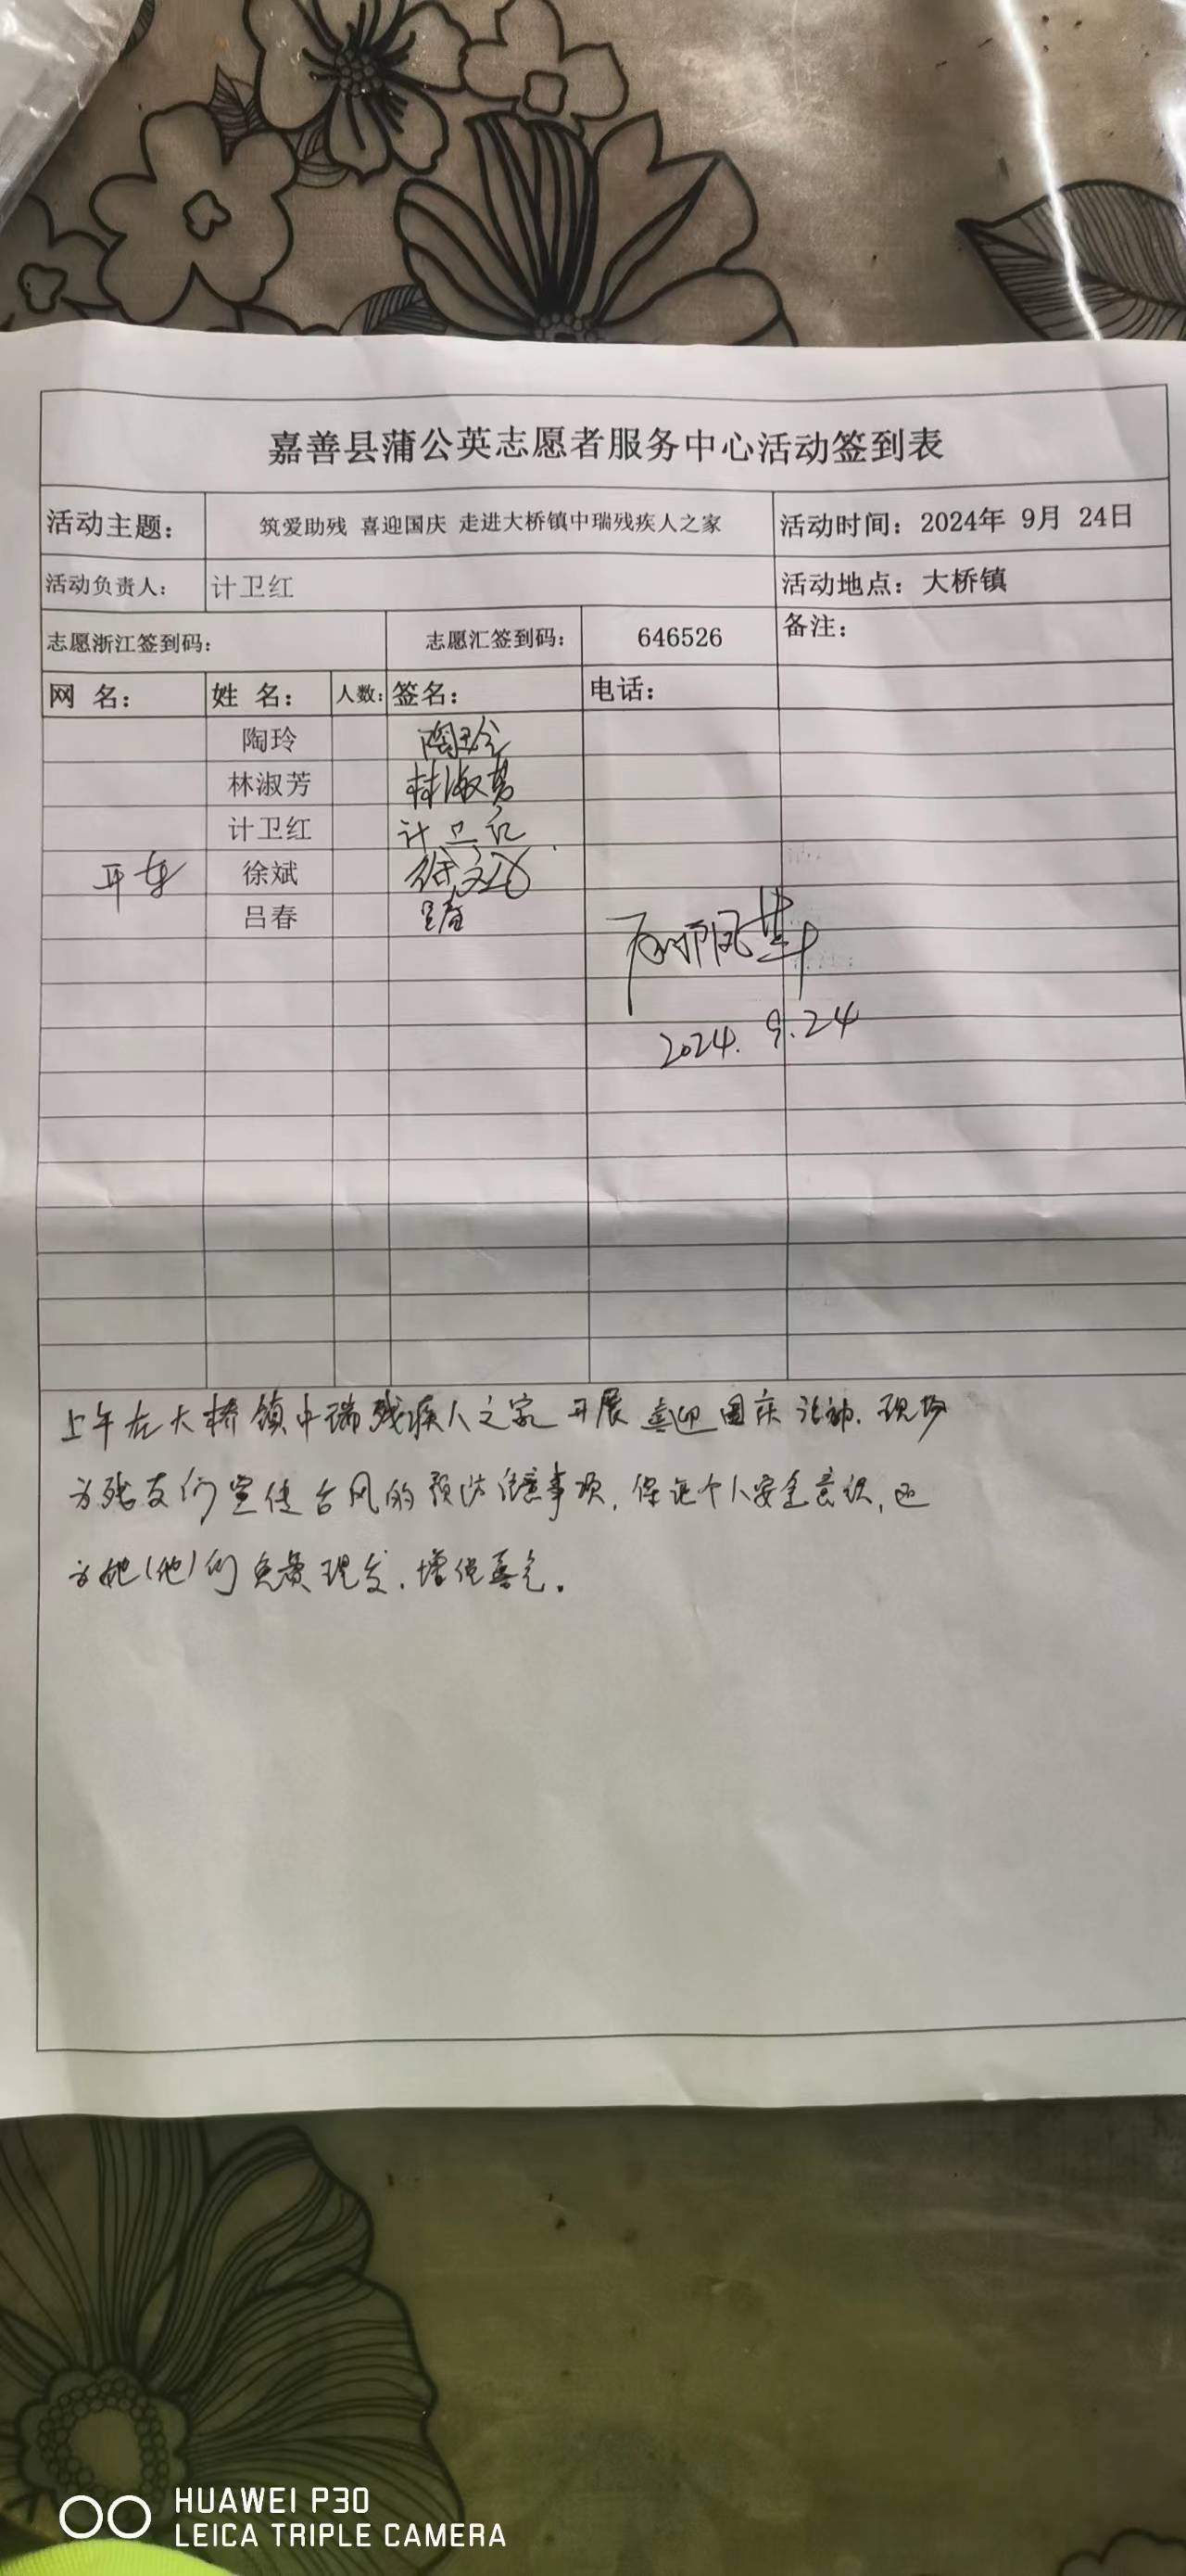 嘉善县蒲公英志愿者服务中心活动签到表
活动主题： 筑爱助残 喜迎国庆 走进大桥镇中瑞残疾人之家 活动时间：2024年 9月 24日
活动负责人： 计卫红 活动地点：大桥镇
志愿浙江签到码： 志愿汇签到码： 646526 备注：
网 名： 姓 名： 人数： 签名： 电话：
陶玲 陶玲
林淑芳 林淑芳
计卫红 计卫红
开车 徐斌 徐斌
吕春 吕春
2024.9.24
上午在大桥镇中瑞残疾人之家开展喜迎国庆活动.现场
为残友们宣传台风的预防注意事项,保证个人安全意识,还
为她(他)们免费理发.增促喜气.
HUAWEI P30
LEICA TRIPLE CAMERA